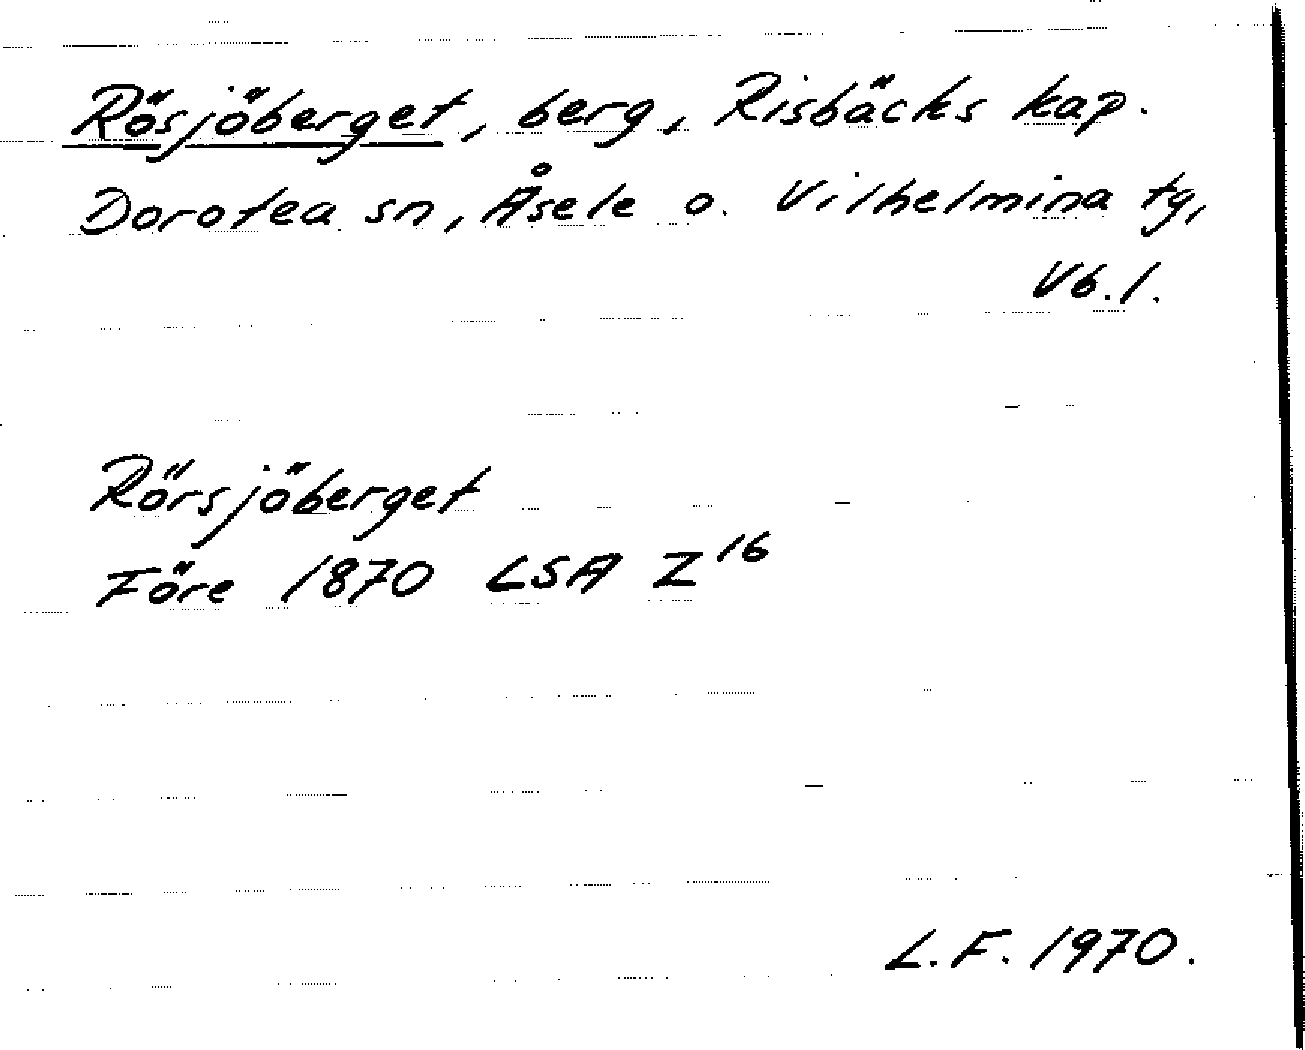 Rösjöberget, berg, Risbäcks kap.
Dorotea sn, Åsele o. Vilhelmina tg,
Vb. l.
Rörsjöberget
Före 1870 LSA Z16
L.F. 1970.